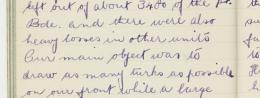 left out of about 3480 of the
Bde. and there were also
heavy losses in other units
Our main object was to
draw as many turks as possible
on our front while a large